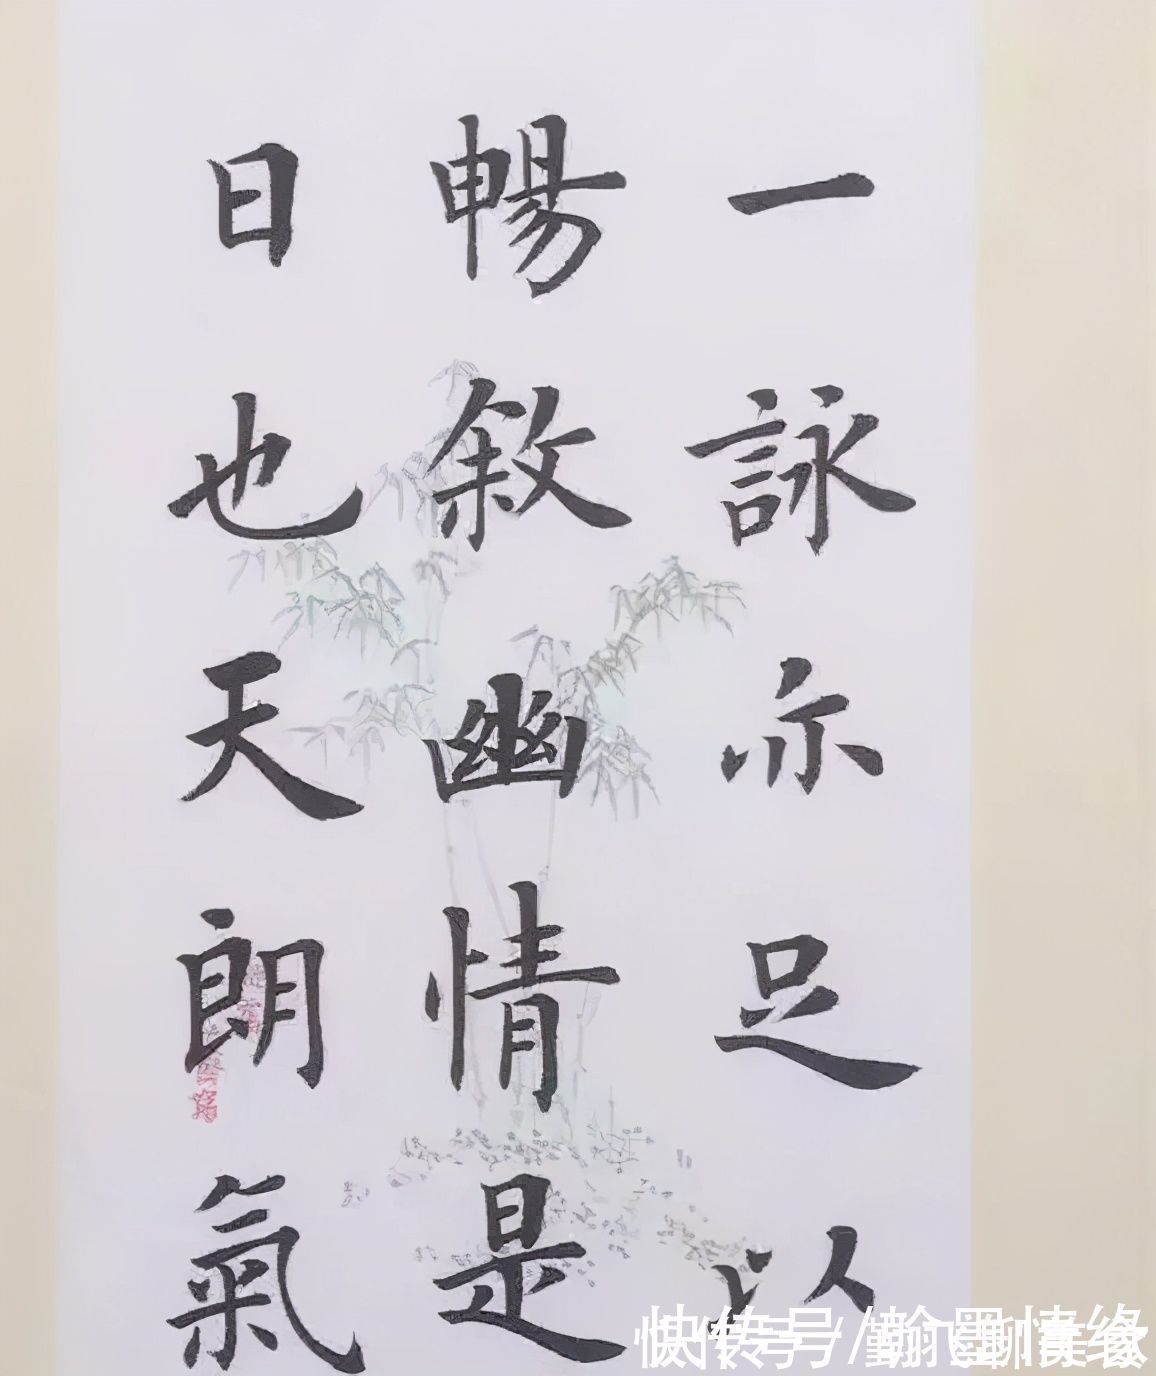 一詠亦足以
暢敘幽情是
日也天朗氣
快传号/翰墨情缘